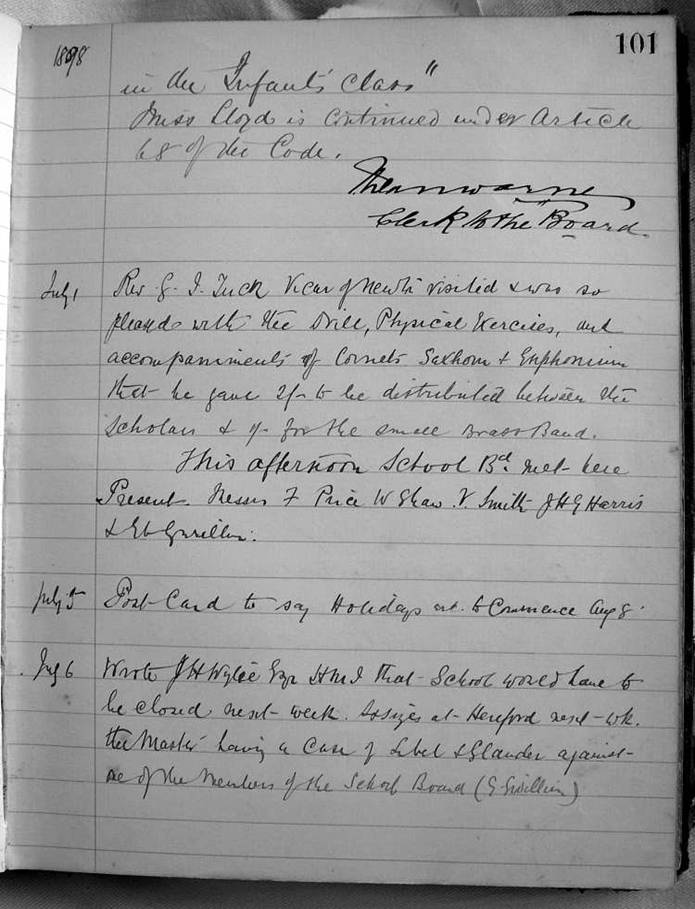 101
1898
in the Infants' Class"
Miss Lloyd is continued under Article
68 of the Code.
Clerk to the Board.
July 1 Rev. G. I. Tuck Vicar of visited & was so
pleased with the Drill, Physical Exercises, and
accompaniments of Cornets Saxhorn & Euphonium
that he gave 2/- to be distributed between the
Scholars & for the small Brass Band.
This afternoon School Bd. met here
Present. Messrs F Price W Shaw. V. Smith J H G Harris
& Gwillim.
July 5 Post-Card to say Holidays are to Commence Aug 8
July 6 Wrote J H Wylie Esqr H M I that School would have to
be closed next week. Assizes at Hereford next wk.
the Master having a Case of Libel & Slander against
one of the Members of the School Board (G Gwillim)